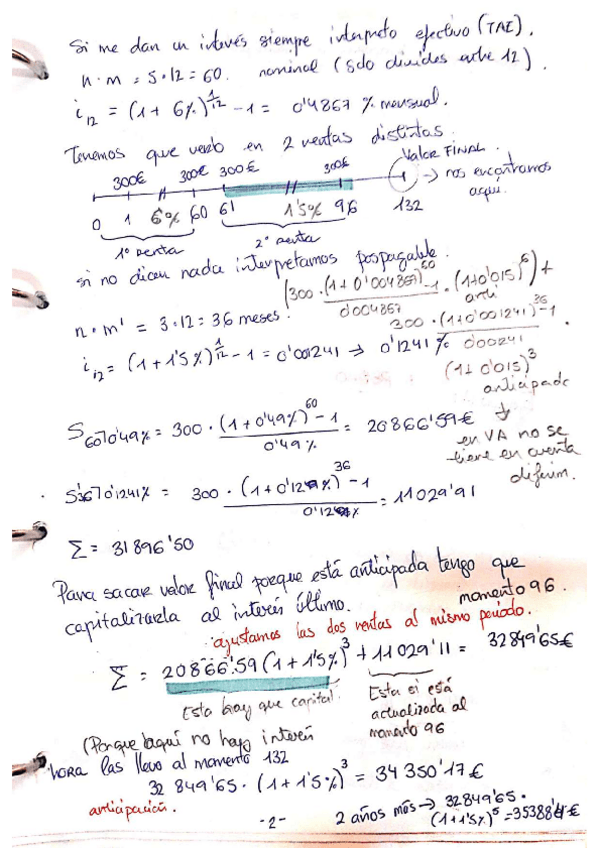 Si me dan un interés siempre interpreto efectivo (TAE).
n·m = 5·12 = 60. nominal (sólo divides entre 12).
i₁₂ = (1+6%)^1/12 - 1 = 0'4867 % mensual.
Tenemos que verlo en 2 rentas distintas:
300€ 300€ 300€ 300€ Valor FINAL.
→ nos encontramos aquí.
0 1 6% 60 61 1'5% 96 132
1º renta 2º renta
si no dicen nada interpretamos pospagable.
(300·(1+0'004867)^60-1 / 0'004867 ·(1+0'015)^6)+
anti
n·m' = 3·12 = 36 meses.
300·(1+0'001241)^36-1 / 0'00241
i₁₂ = (1+1'5%)^1/12 - 1 = 0'001241 → 0'1241%
(1+0'015)^3
anticipada
S60⁊0'49% = 300·(1+0'49%)^60-1 / 0'49% = 20866'59€
↓
en VA no se tiene en cuenta diferim.
S36⁊0'1241% = 300·(1+0'12%)^36-1 / 0'12% = 11029'91
Σ = 31896'50
Para sacar valor final porque está anticipada tengo que
capitalizarla al interés último. momento 96.
ajustamos las dos rentas al mismo período.
Σ = 20866'59(1+1'5%)^3 + 11029'11 = 32849'65€
Esta hay que capital. Esta si está
actualizada al
momento 96
(Porque aquí no hay interés
hora las llevo al momento 132
32 849'65·(1+1'5%)^3 = 34 350'17€
anticipación.
-2-
2 años más → 32849'65·
(1+1'5%)^5 =